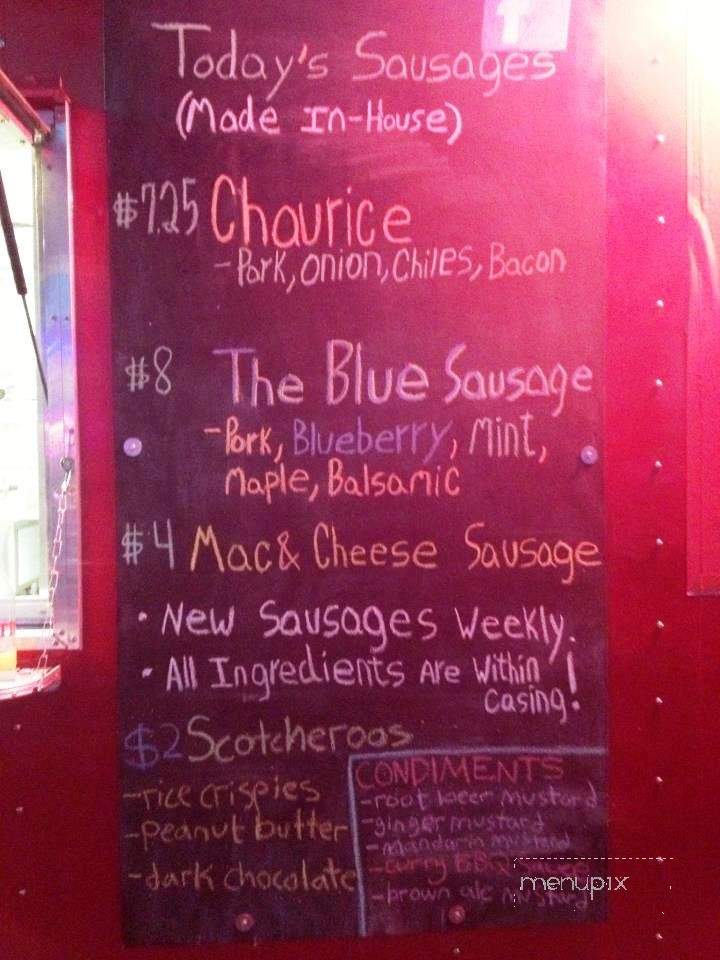 Today's Sausages
(Made In-House)
$7.25 Chaurice
-Pork, Onion, Chiles, Bacon
$8 The Blue Sausage
-Pork, Blueberry, Mint,
Maple, Balsamic
$4 Mac & Cheese Sausage
• New Sausages Weekly.
• All Ingredients Are Within
Casing!
$2 Scotcheroos
-rice crispies
-peanut butter
-dark chocolate
CONDIMENTS
-root beer mustard
-ginger mustard
-Mandarin mustard
-curry BBQ
-brown ale mustard
menupix